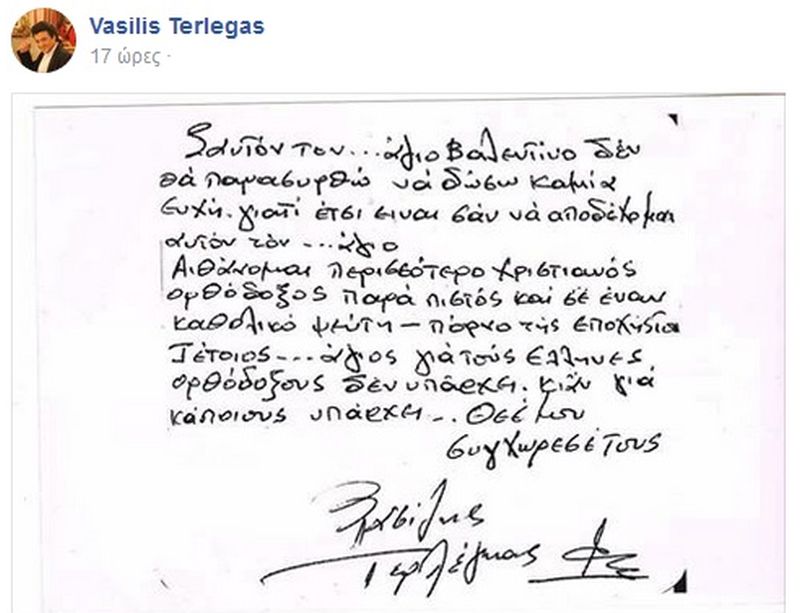 Vasilis Terlegas
17 ώρες ·
Σαυτόν τον...άγιο Βαλεντίνο δέν
θά παρασυρθώ νά δώσω καμία
ευχή. γιατί έτσι ειναι σάν νά αποδέχομαι
αυτόν τόν ... άγιο
Αισθάνομαι περισσότερο χριστιανός
ορθόδοξος παρά πιστός καί σέ έναν
καθολικό ψεύτη - πόρνο της εποχής
Τέτοιος ... άγιος γιά τούς Ελληνες
ορθόδοξους δέν υπάρχει. κι άν γιά
κάποιους υπάρχει ... Θεέ μου
συγχωρεσέ τους
Βασίλης
Τερλέγκας